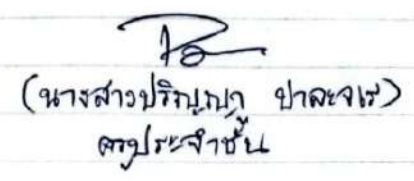 (นางสาวปริญญา ปาละจเร)
ครูประจำชั้น